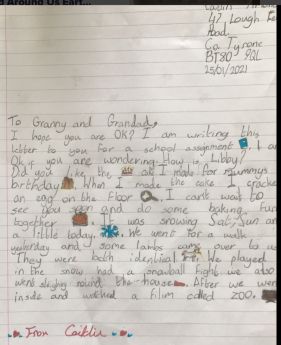 d Around Us Eart...
47 Lough Fe
Road
Co. Tyrone
BT80 9QL
25/01/2021
To Granny and Grandad,
I hope you are OK? I am writing this
letter to you for a school assignment. I a
Ok if you are wondering. How is Libby?
Did you like the cake I made for mummys
birthday. When I made the cake I cracke
an egg on the floor. I can't wait to
see you soon and do some baking. Fun
together. It was snowing Sat, Sun an
a little today. We went for a walk
yesterday and some lambs came over to us
They were both identical. We played
in the snow had a snowball fight we also
went sleighing round the house. After we wen
inside and watched a film called ZOO.
From Caitlin